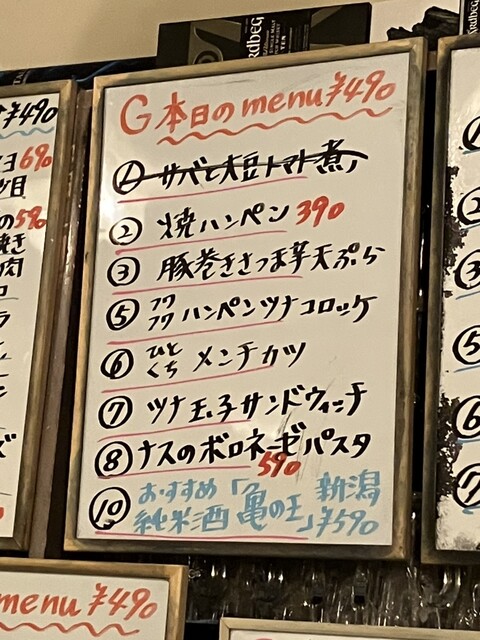 ARDBEG
TEN
RDBEG
¥490
G本日のmenu ¥490
① サバと大豆トマト煮
② 焼ハンペン 390
③ 豚巻きさつま芋天ぷら
⑤ フワフワ ハンペンツナコロッケ
⑥ ひとくち メンチカツ
⑦ ツナ玉子サンドウィッチ
⑧ ナスのボロネーゼパスタ
590
⑩ おすすめ「亀の王」新潟
純米酒 ¥590
690
の590
焼き
肉
②
③
⑤
⑥
⑦
menu ¥490